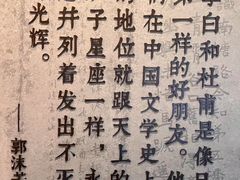 李白和杜甫是像兄
弟一样的好朋友。他
们在中国文学史上
的地位就跟天上的
子星座一样，永
远并列着发出不灭
光辉。
——郭沫若